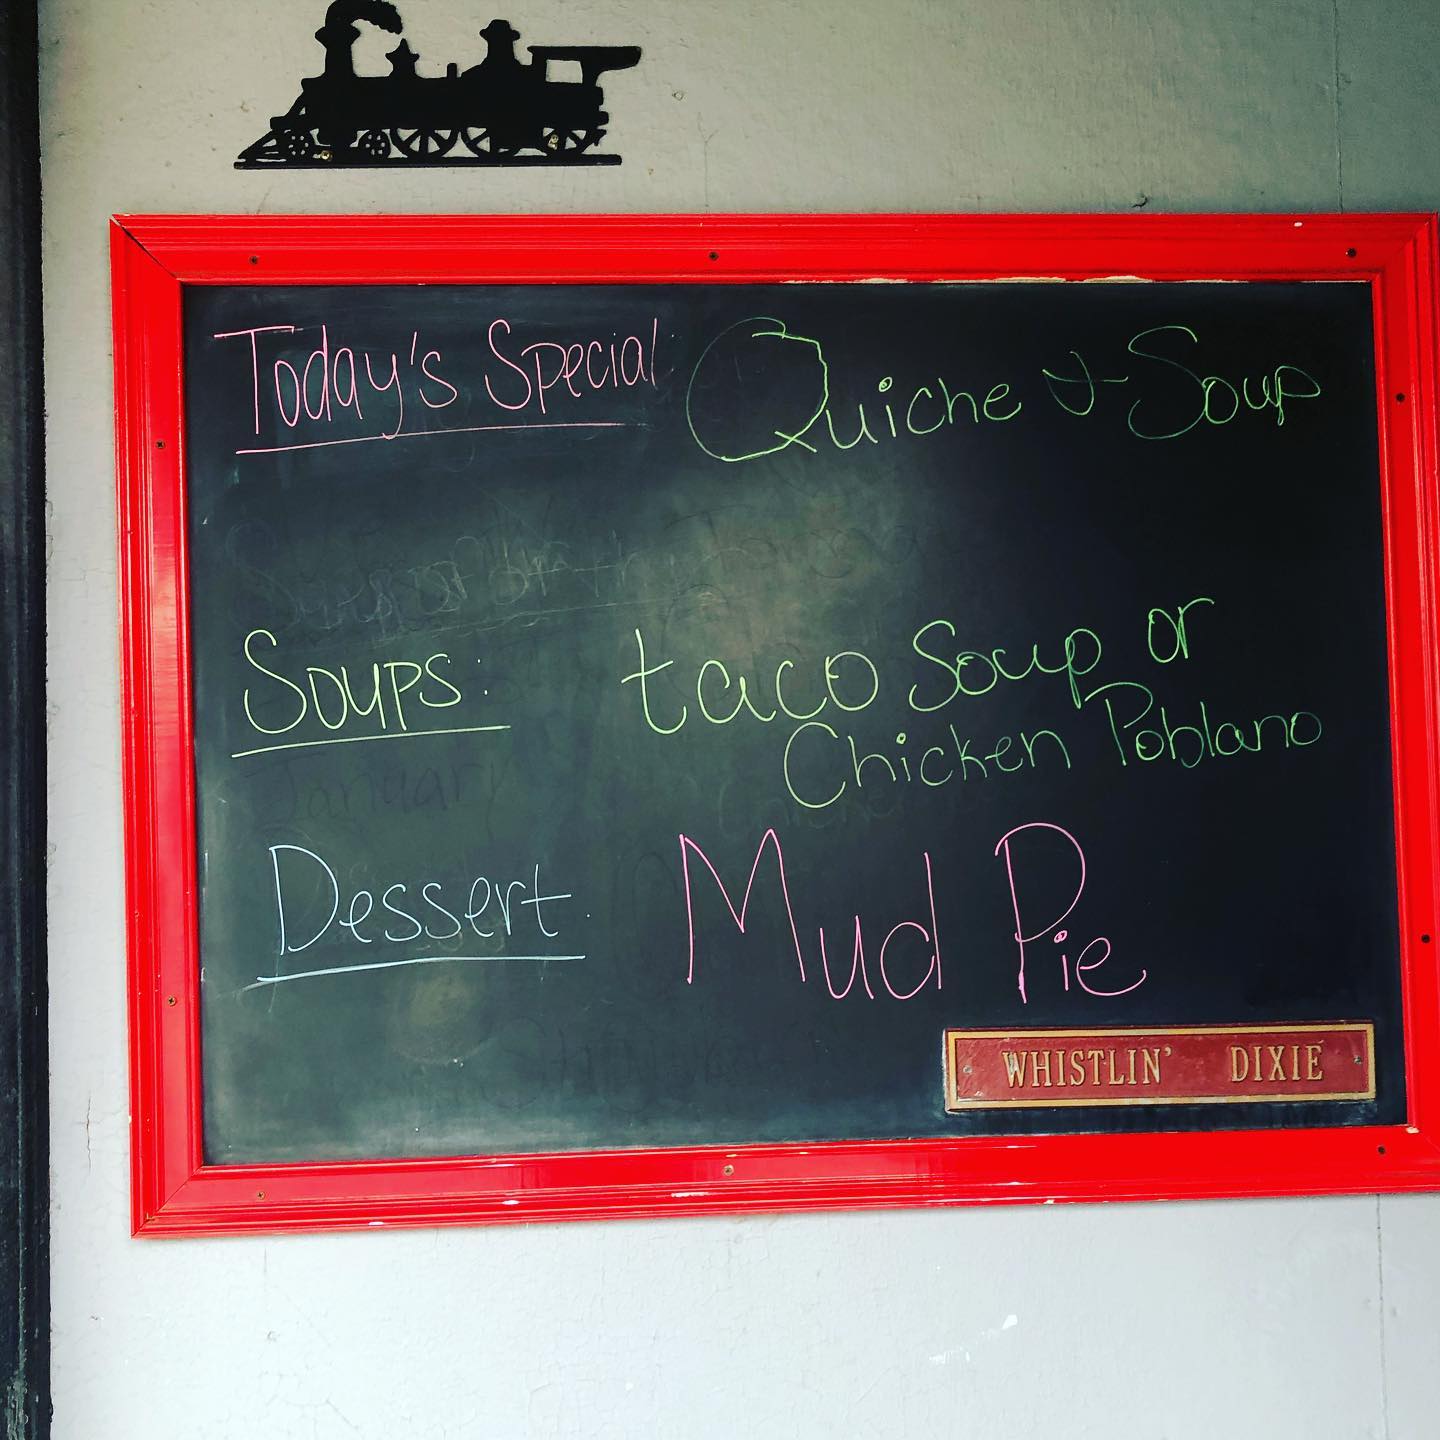 Today's Special: Quiche & Soup
Soups: taco Soup or
Chicken Poblano
January
Dessert: Mud Pie
WHISTLIN' DIXIE